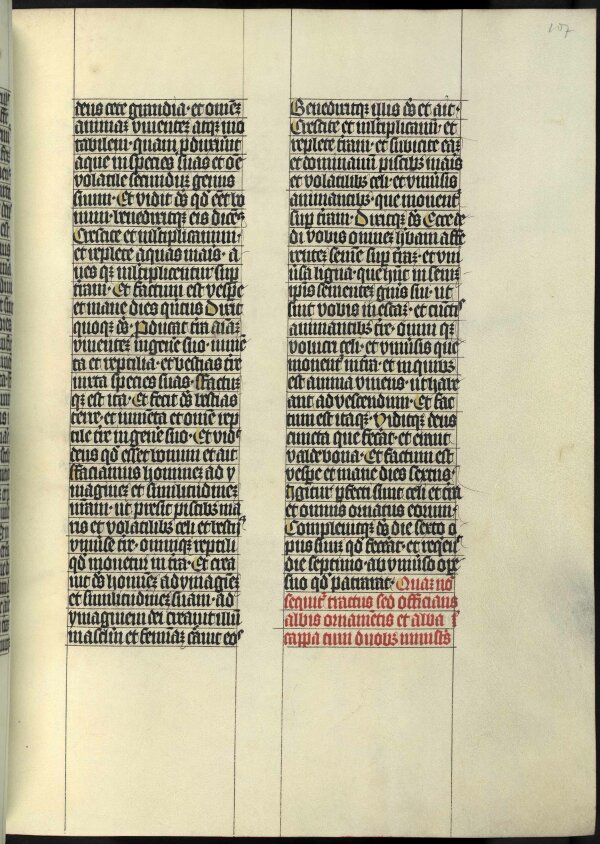 deus cete grandia · et omnem
animam viventem atque mo
tabilem · quam produxerunt
aque in species suas et omne
volatile secundum genus
suum · Et vidit deus quod esset bo
num · benedixitque eis dicens
Crescite et multiplicamini ·
et replete aquas maris · a
ves que multiplicentur super
terram · Et factum est vespere
et mane dies quintus Dixit
quoque deus · Producat terra animam
viventem in genere suo · iumen
ta et reptilia · et bestias terre
iuxta species suas · ffactum
que est ita · Et fecit deus bestias
terre · et iumenta et omne rep
tile terre in genere suo · Et vidit
deus quod esset bonum et ait
ffaciamus hominem ad y
maginem et similitudinem
nostram · ut presit piscibus ma
ris et volatilibus celi et bestiis
universe terre · omnique reptili
quod movetur in terra · Et crea
vit deus hominem ad ymaginem
et similitudinem suam · ad
ymaginem dei creavit illum
masculum et feminam creavit eos
Benedixitque illis deus et ait ·
Crescite et multiplicamini et
replete terram · et subicite eam
et dominamini piscibus maris
et volatilibus celi · et universis
animantibus · que moventur
super terram · Dixitque deus · Ecce de
di vobis omnem herbam affe
rentem semen super terram · et uni
versa ligna · que habent in semet
ipsis sementem generis sui · ut
sint vobis in escam · et cunctis
animantibus terre · omni que
volucri celi · et universis que
moventur in terra · et in quibus
est anima vivens · ut habe
ant ad vescendum · Et fac
tum est itaque · Viditque deus
cuncta que fecerat · et erant
valde bona · Et factum est
vespere et mane dies sextus
Igitur perfecti sunt celi et terra
et omnis ornatus eorum ·
Complevitque deus die sexto o
pus suum quod fecerat · et requievit
die septimo · ab universo ope
re suo quod patrarat · Quam non
sequitur tractus sed officians
albis ornamentis et alba
cappa cum duobus ministris
107